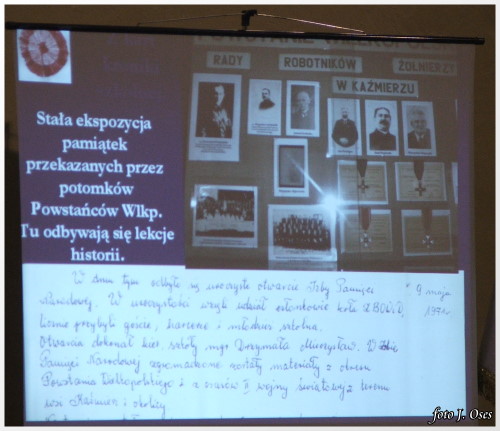 POWSTANIE WIELKOPOLSKIE
RADY ROBOTNIKÓW ŻOŁNIERZY
W KAŹMIERZU
Stała ekspozycja
pamiątek
przekazanych przez
potomków
Powstańców Wlkp.
Tu odbywają się lekcje
historii.
W dniu tym odbyło się uroczyste otwarcie Izby Pamięci
Narodowej. W uroczystości wzięli udział członkowie koła ZBOWiD,
licznie przybyli goście, harcerze i młodzież szkolna.
Otwarcia dokonał kier. szkoły mgr Derzymała Mieczysław. W Izbie
Pamięci Narodowej zgromadzone zostały materiały z okresu
Powstania Wielkopolskiego i z czasów II wojny światowej z terenu
wsi Kaźmierz i okolicy
9 maja
foto J. Oses